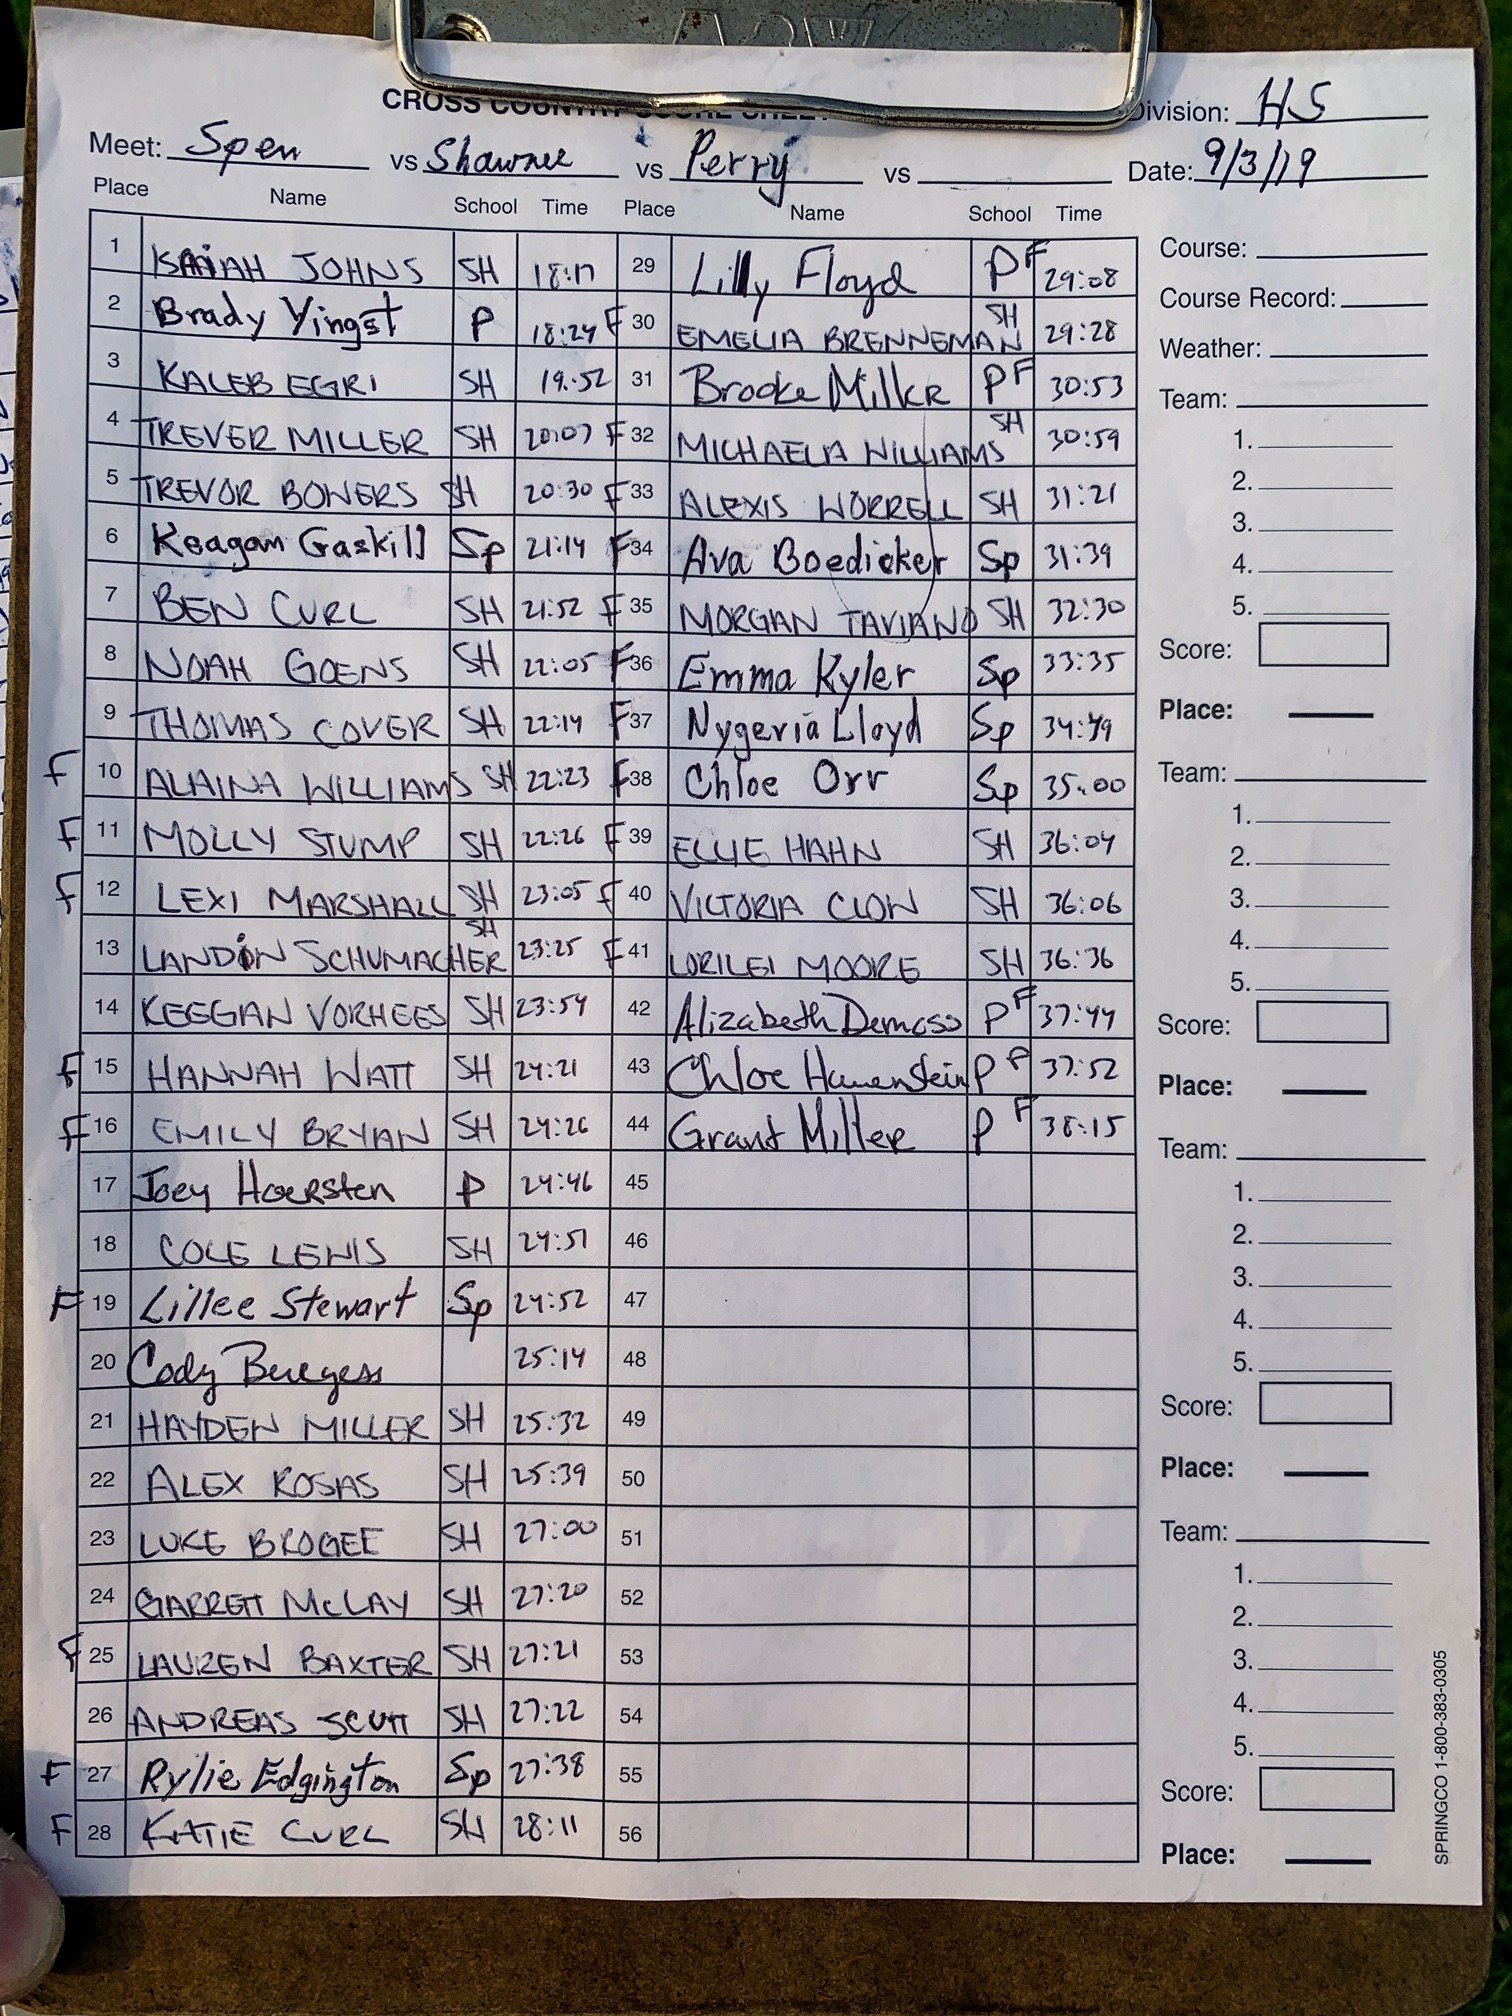 CROSS COUNTRY SCORE SHEET
Division: HS
Meet: Spen vs Shawnee vs Perry vs
Date: 9/3/19
Place Name School Time Place Name School Time
1 ISAIAH JOHNS SH 18:17
2 Brady Yingst P 18:24
3 KALEB EGRI SH 19:52
4 TREVER MILLER SH 20:07
5 TREVOR BOWERS SH 20:30
6 Keagan Gaskill Sp 21:14
7 BEN CURL SH 21:52
8 NOAH GOENS SH 22:05
9 THOMAS COVER SH 22:14
F 10 ALAINA WILLIAMS SH 22:23
F 11 MOLLY STUMP SH 22:26
F 12 LEXI MARSHALL SH 23:05
13 LANDON SCHUMACHER SH 23:25
14 KEEGAN VORHEES SH 23:54
F 15 HANNAH WATT SH 24:21
F 16 EMILY BRYAN SH 24:26
17 Joey Hoersten P 24:46
18 COLE LEWIS SH 24:51
F 19 Lillee Stewart Sp 24:52
20 Cody Burgess 25:14
21 HAYDEN MILLER SH 25:32
22 ALEX ROSAS SH 25:39
23 LUKE BROGEE SH 27:00
24 GARRETT McCLAY SH 27:20
F 25 LAUREN BAXTER SH 27:21
26 ANDREAS SCUTT SH 27:22
F 27 Rylie Edgington Sp 27:38
F 28 KATIE CURL SH 28:11
29 Lilly Floyd P F 29:08
F 30 EMELIA BRENNEMAN SH 29:28
31 Brooke Miller P F 30:53
F 32 MICHAELA WILLIAMS SH 30:59
F 33 ALEXIS WORRELL SH 31:21
F 34 Ava Boedicker Sp 31:39
F 35 MORGAN TAVIANO SH 32:30
F 36 Emma Kyler Sp 33:35
F 37 Nygeria Lloyd Sp 34:49
F 38 Chloe Orr Sp 35:00
F 39 ELLIE HAHN SH 36:04
F 40 VICTORIA CLOW SH 36:06
F 41 LORILEI MOORE SH 36:36
42 Alizabeth Demoss P F 37:44
43 Chloe Hauenstein P F 37:52
44 Grant Miller P F 38:15
45
46
47
48
49
50
51
52
53
54
55
56
Course:
Course Record:
Weather:
Team:
1.
2.
3.
4.
5.
Score:
Place:
Team:
1.
2.
3.
4.
5.
Score:
Place:
Team:
1.
2.
3.
4.
5.
Score:
Place:
Team:
1.
2.
3.
4.
5.
Score:
Place:
SPRINGCO 1-800-383-0305